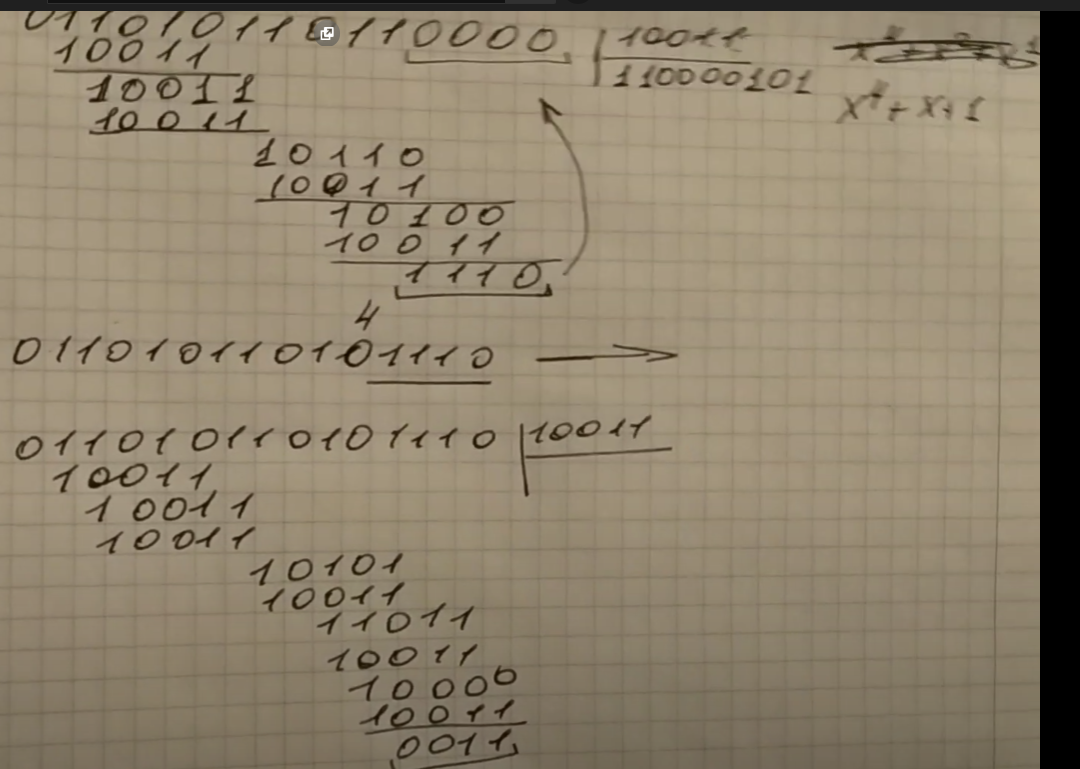 011010110110000 10011
10011 110000101
10011 x⁴+x+1
10011
10110
10011
10100
10011
1110
4
011010110101110
011010110101110 10011
10011
10011
10011
10101
10011
11011
10011
10000
10011
0011